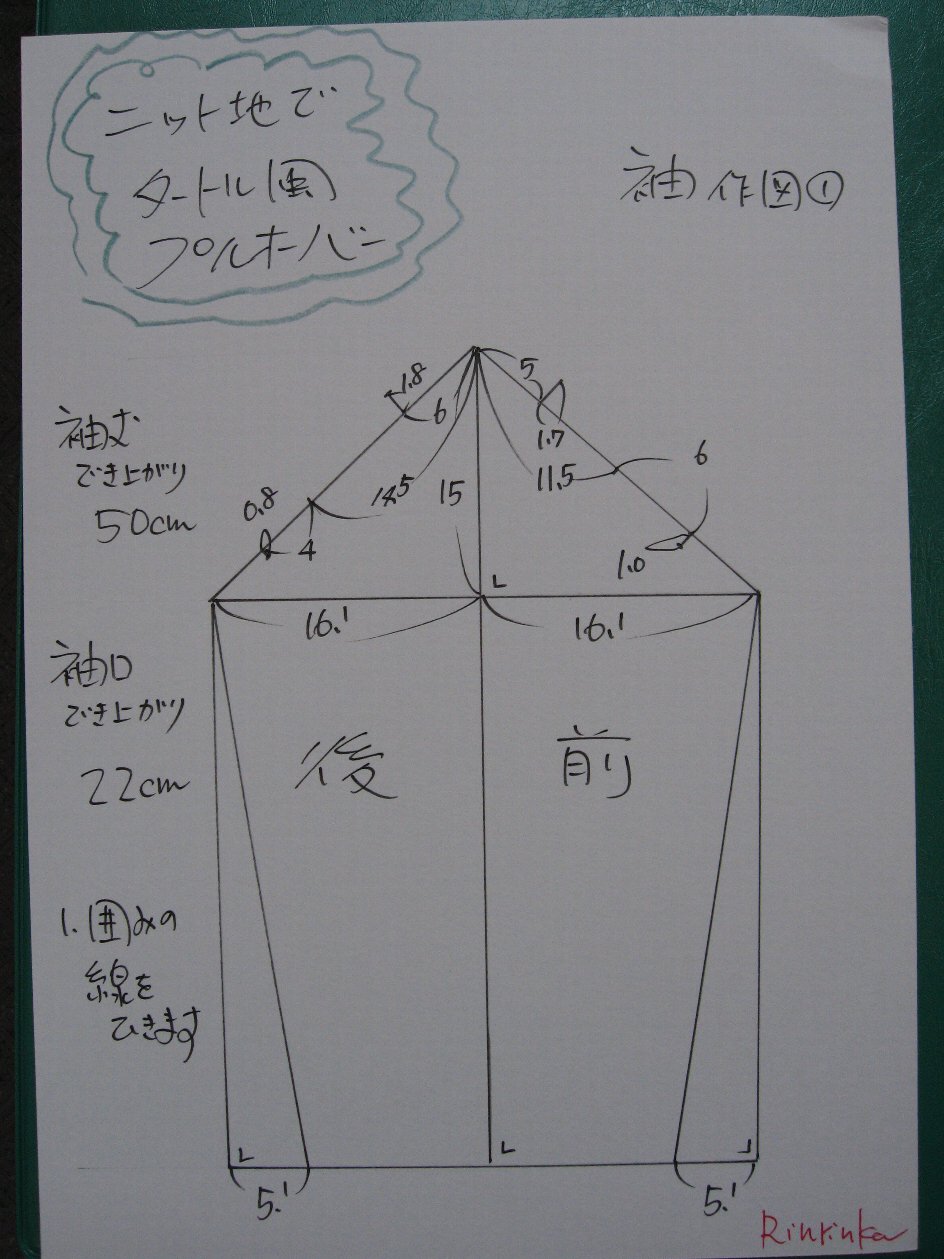 ニット地で
タートル風
プルオーバー
袖 作図①
袖丈
でき上がり
50cm
袖口
でき上がり
22cm
1. 囲みの
線を
ひきます
1.8
6
5
1.7
6
11.5
15
0.8
4
1.0
16.1
16.1
後
前
5.1
5.1
Rinrinka